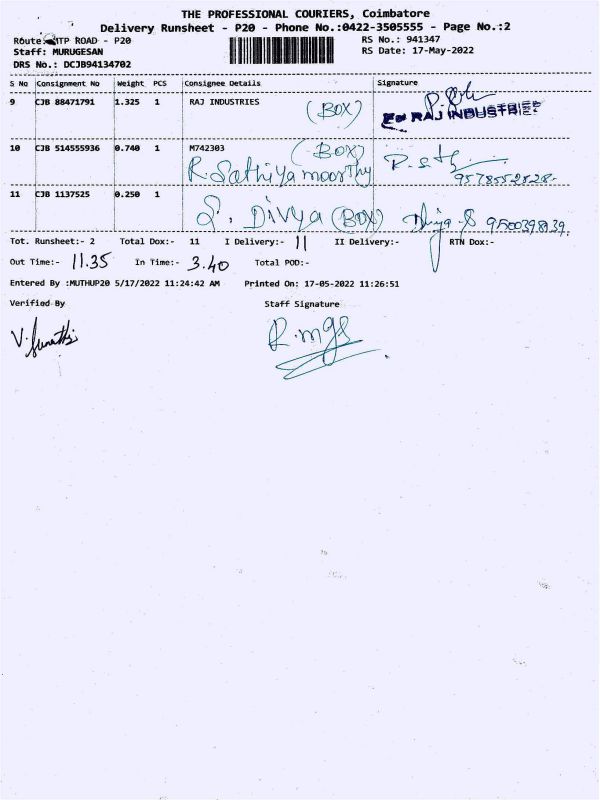 THE PROFESSIONAL COURIERS, Coimbatore
Delivery Runsheet - P20 - Phone No.:0422-3505555 - Page No.:2
Route: MTP ROAD - P20 RS No.: 941347
Staff: MURUGESAN RS Date: 17-May-2022
DRS No.: DCJB94134702
S No Consignment No Weight PCS Consignee Details Signature
9 CJB 88471791 1.325 1 RAJ INDUSTRIES (BOX) RAJ INDUSTRIES
10 CJB 514555936 0.740 1 M742303 (BOX)
R Sathiyamoorthy P. Sth 9578552828
11 CJB 1137525 0.250 1 S. Divya (BOX) Dhiya S
Tot. Runsheet:- 2 Total Dox:- 11 I Delivery:- 11 II Delivery:- RTN Dox:-
Out Time:- 11.35 In Time:- 3.40 Total POD:-
Entered By :MUTHUP20 5/17/2022 11:24:42 AM Printed On: 17-05-2022 11:26:51
Verified By Staff Signature